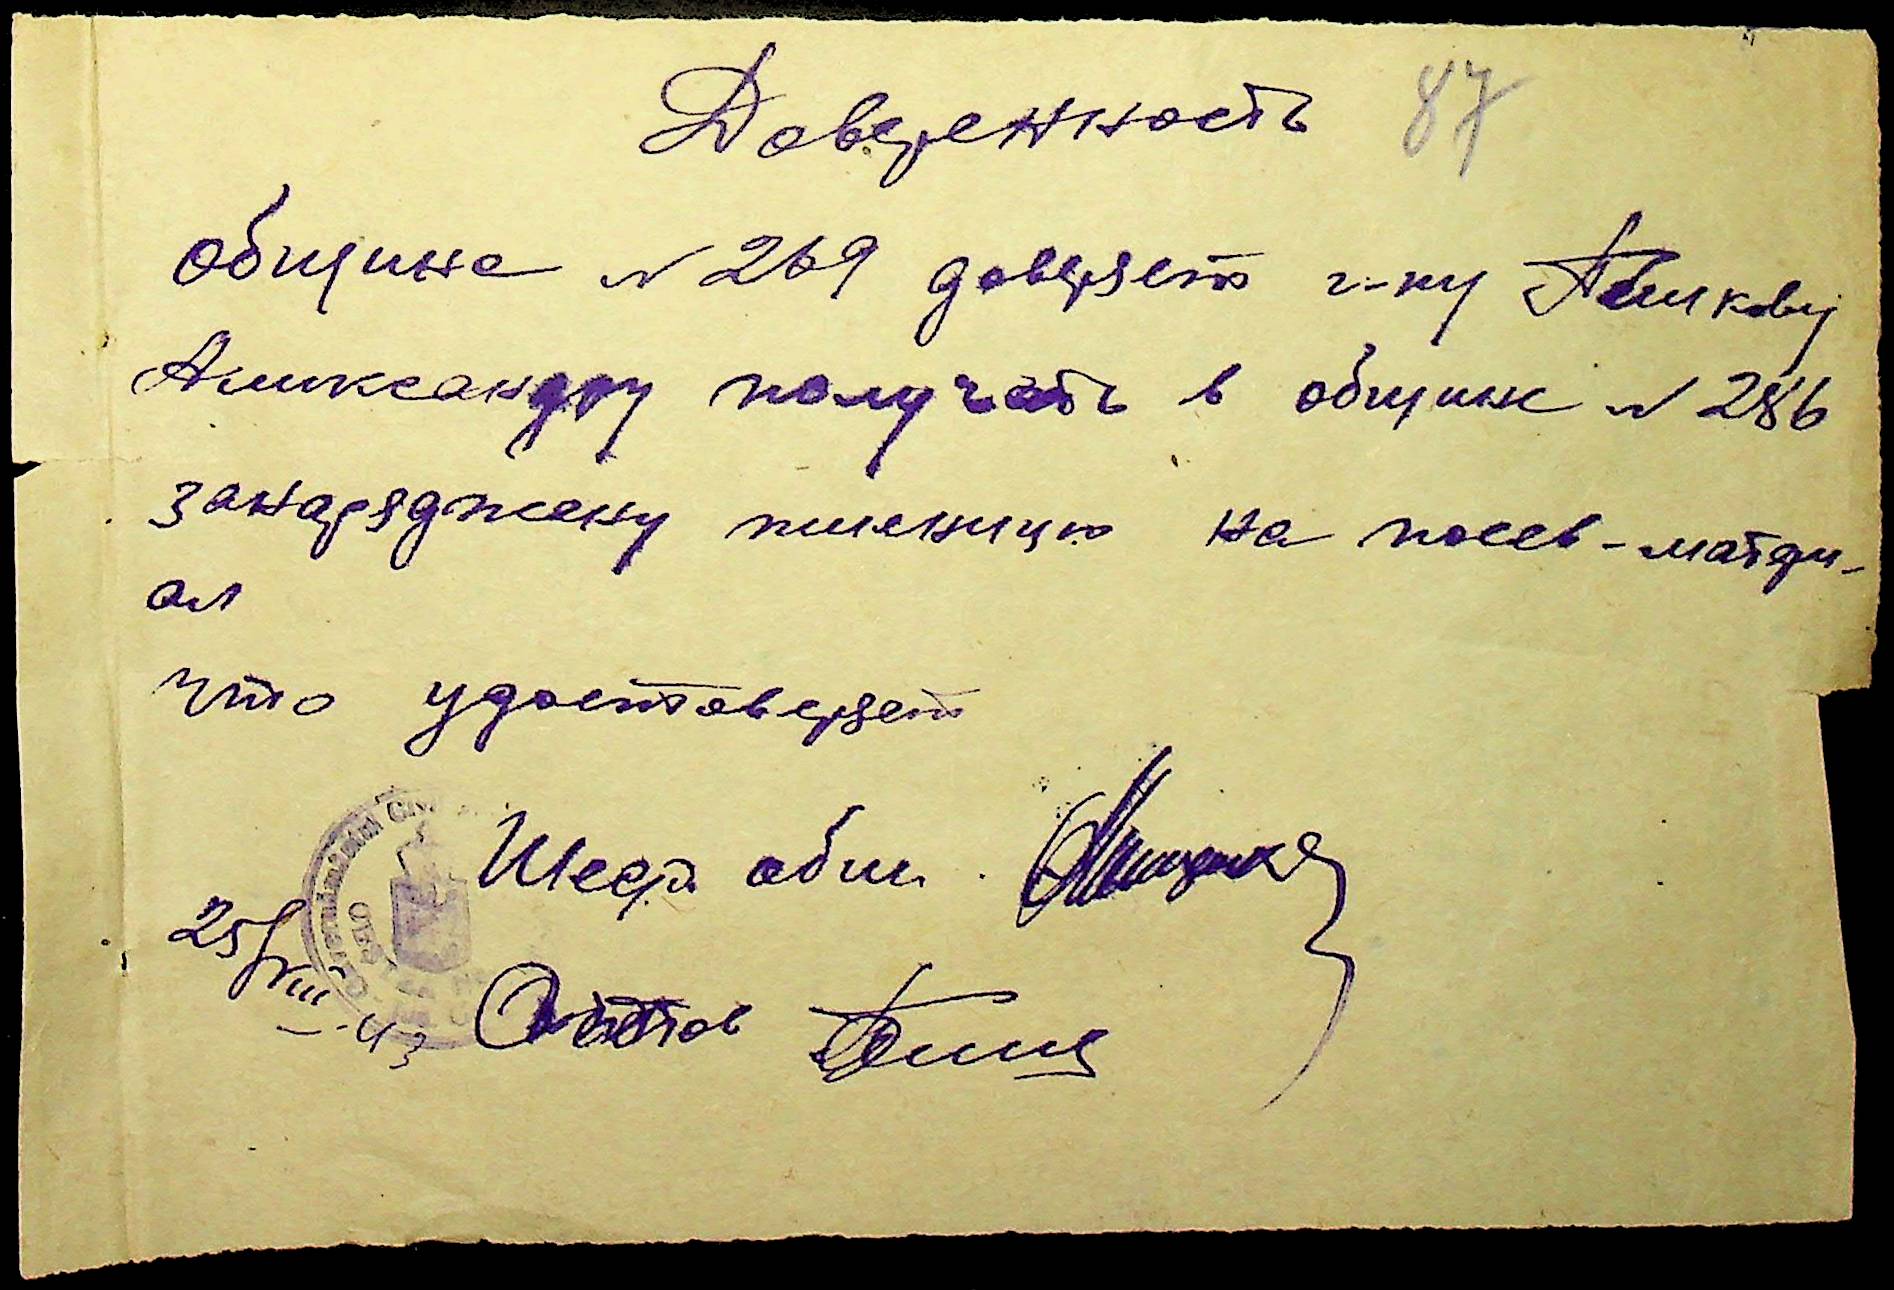 Доверенность 87
община N 269 доверяет г-ну
Аликсандру получать в общине N 286
занаряджену пшеницю на посев-матери-
ал
что удостоверяет
Шеф общ.
25/VIII-43